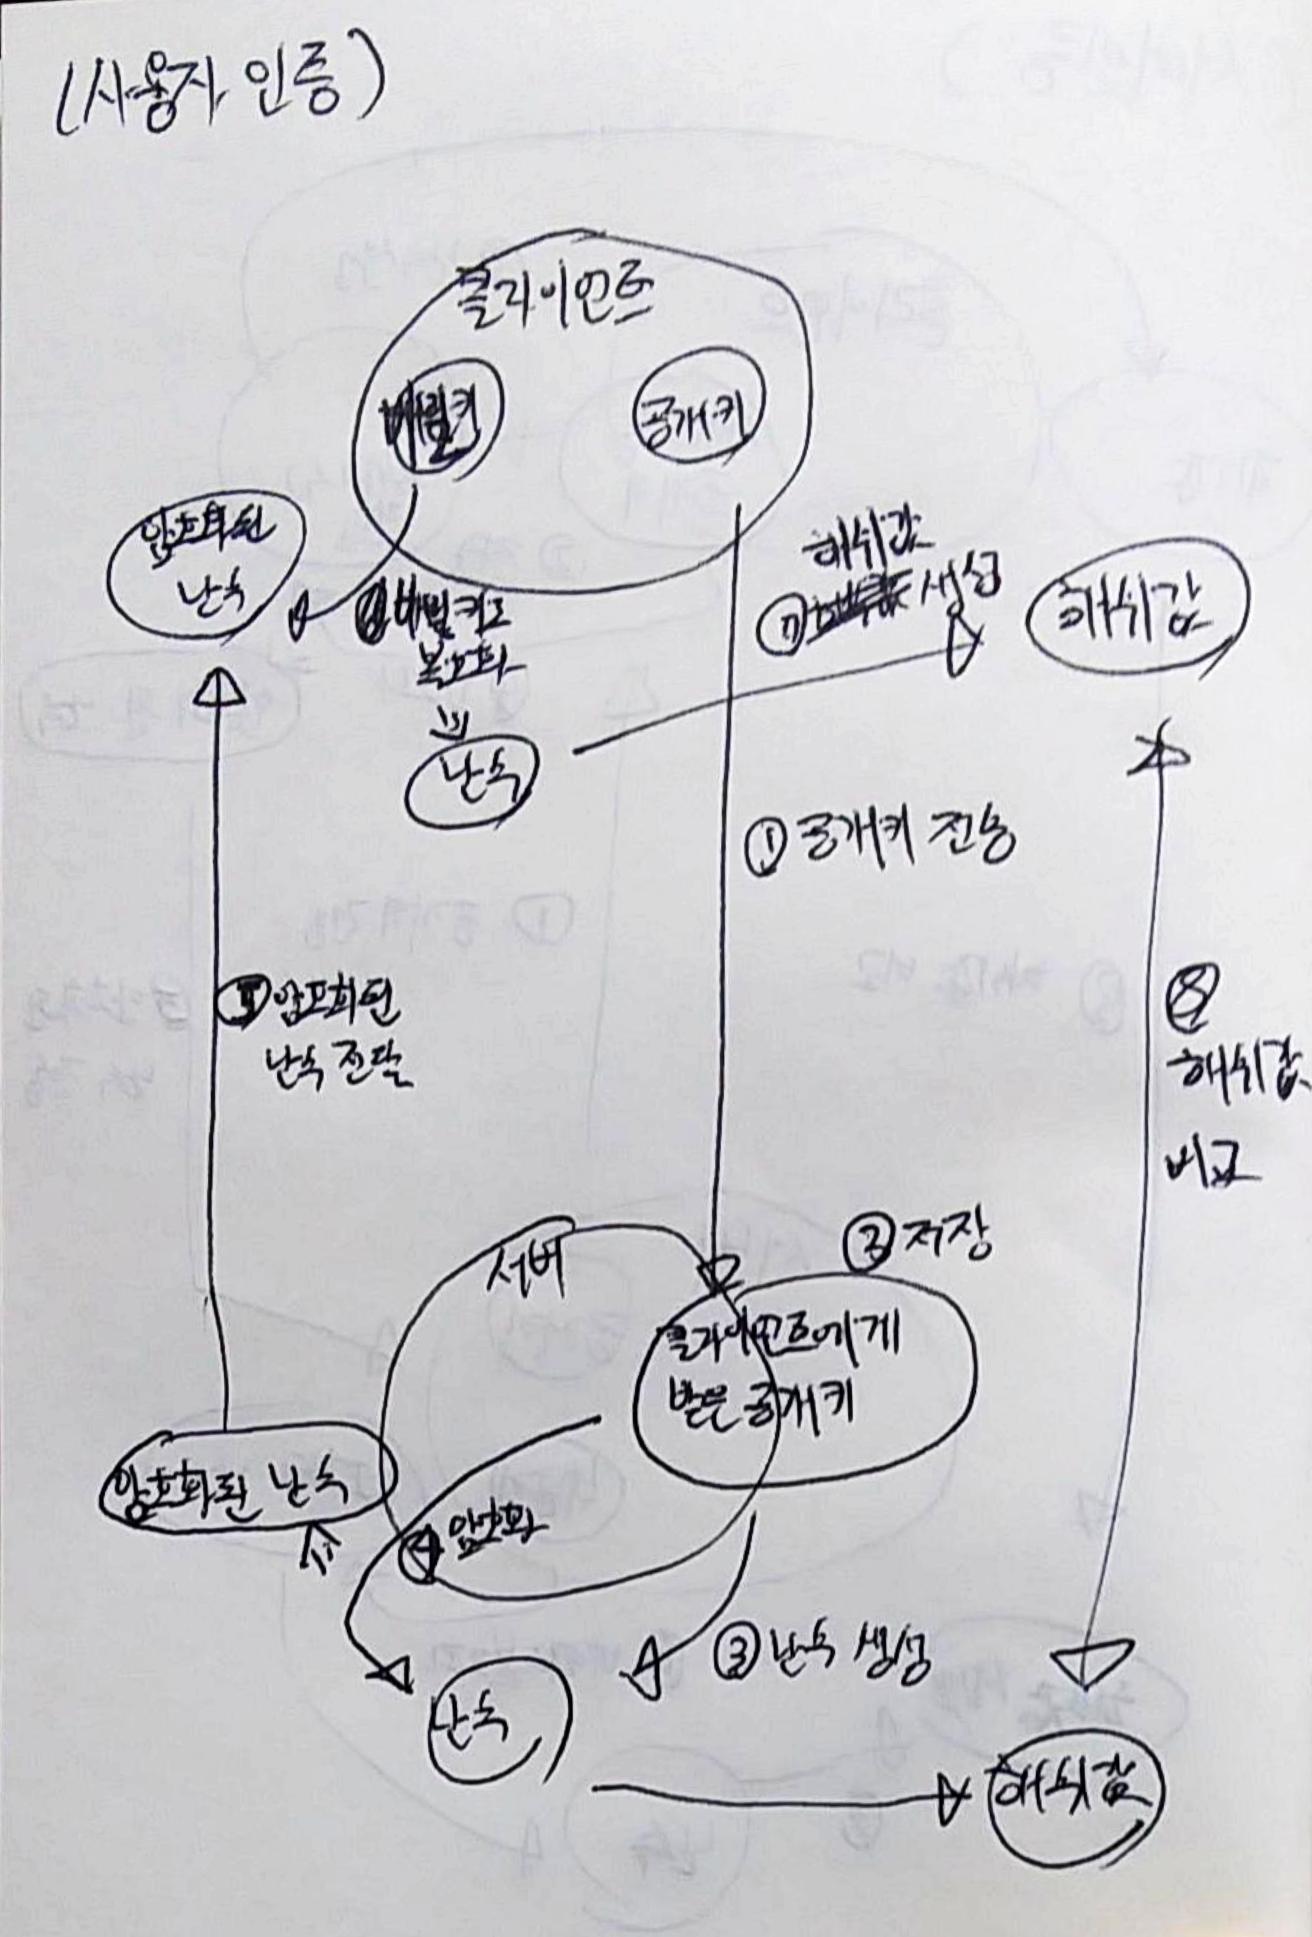 (사용자 인증)
클라이언트
비밀키
공개키
암호화된
난수
⑥ 비밀키로
복호화
난수
해쉬값
⑦ 생성
해쉬값
① 공개키 전송
⑤ 암호화된
난수 전달
⑧
해쉬값
비교
서버
② 저장
클라이언트에게
받은 공개키
암호화된 난수
④ 암호화
③ 난수 생성
난수
해쉬값